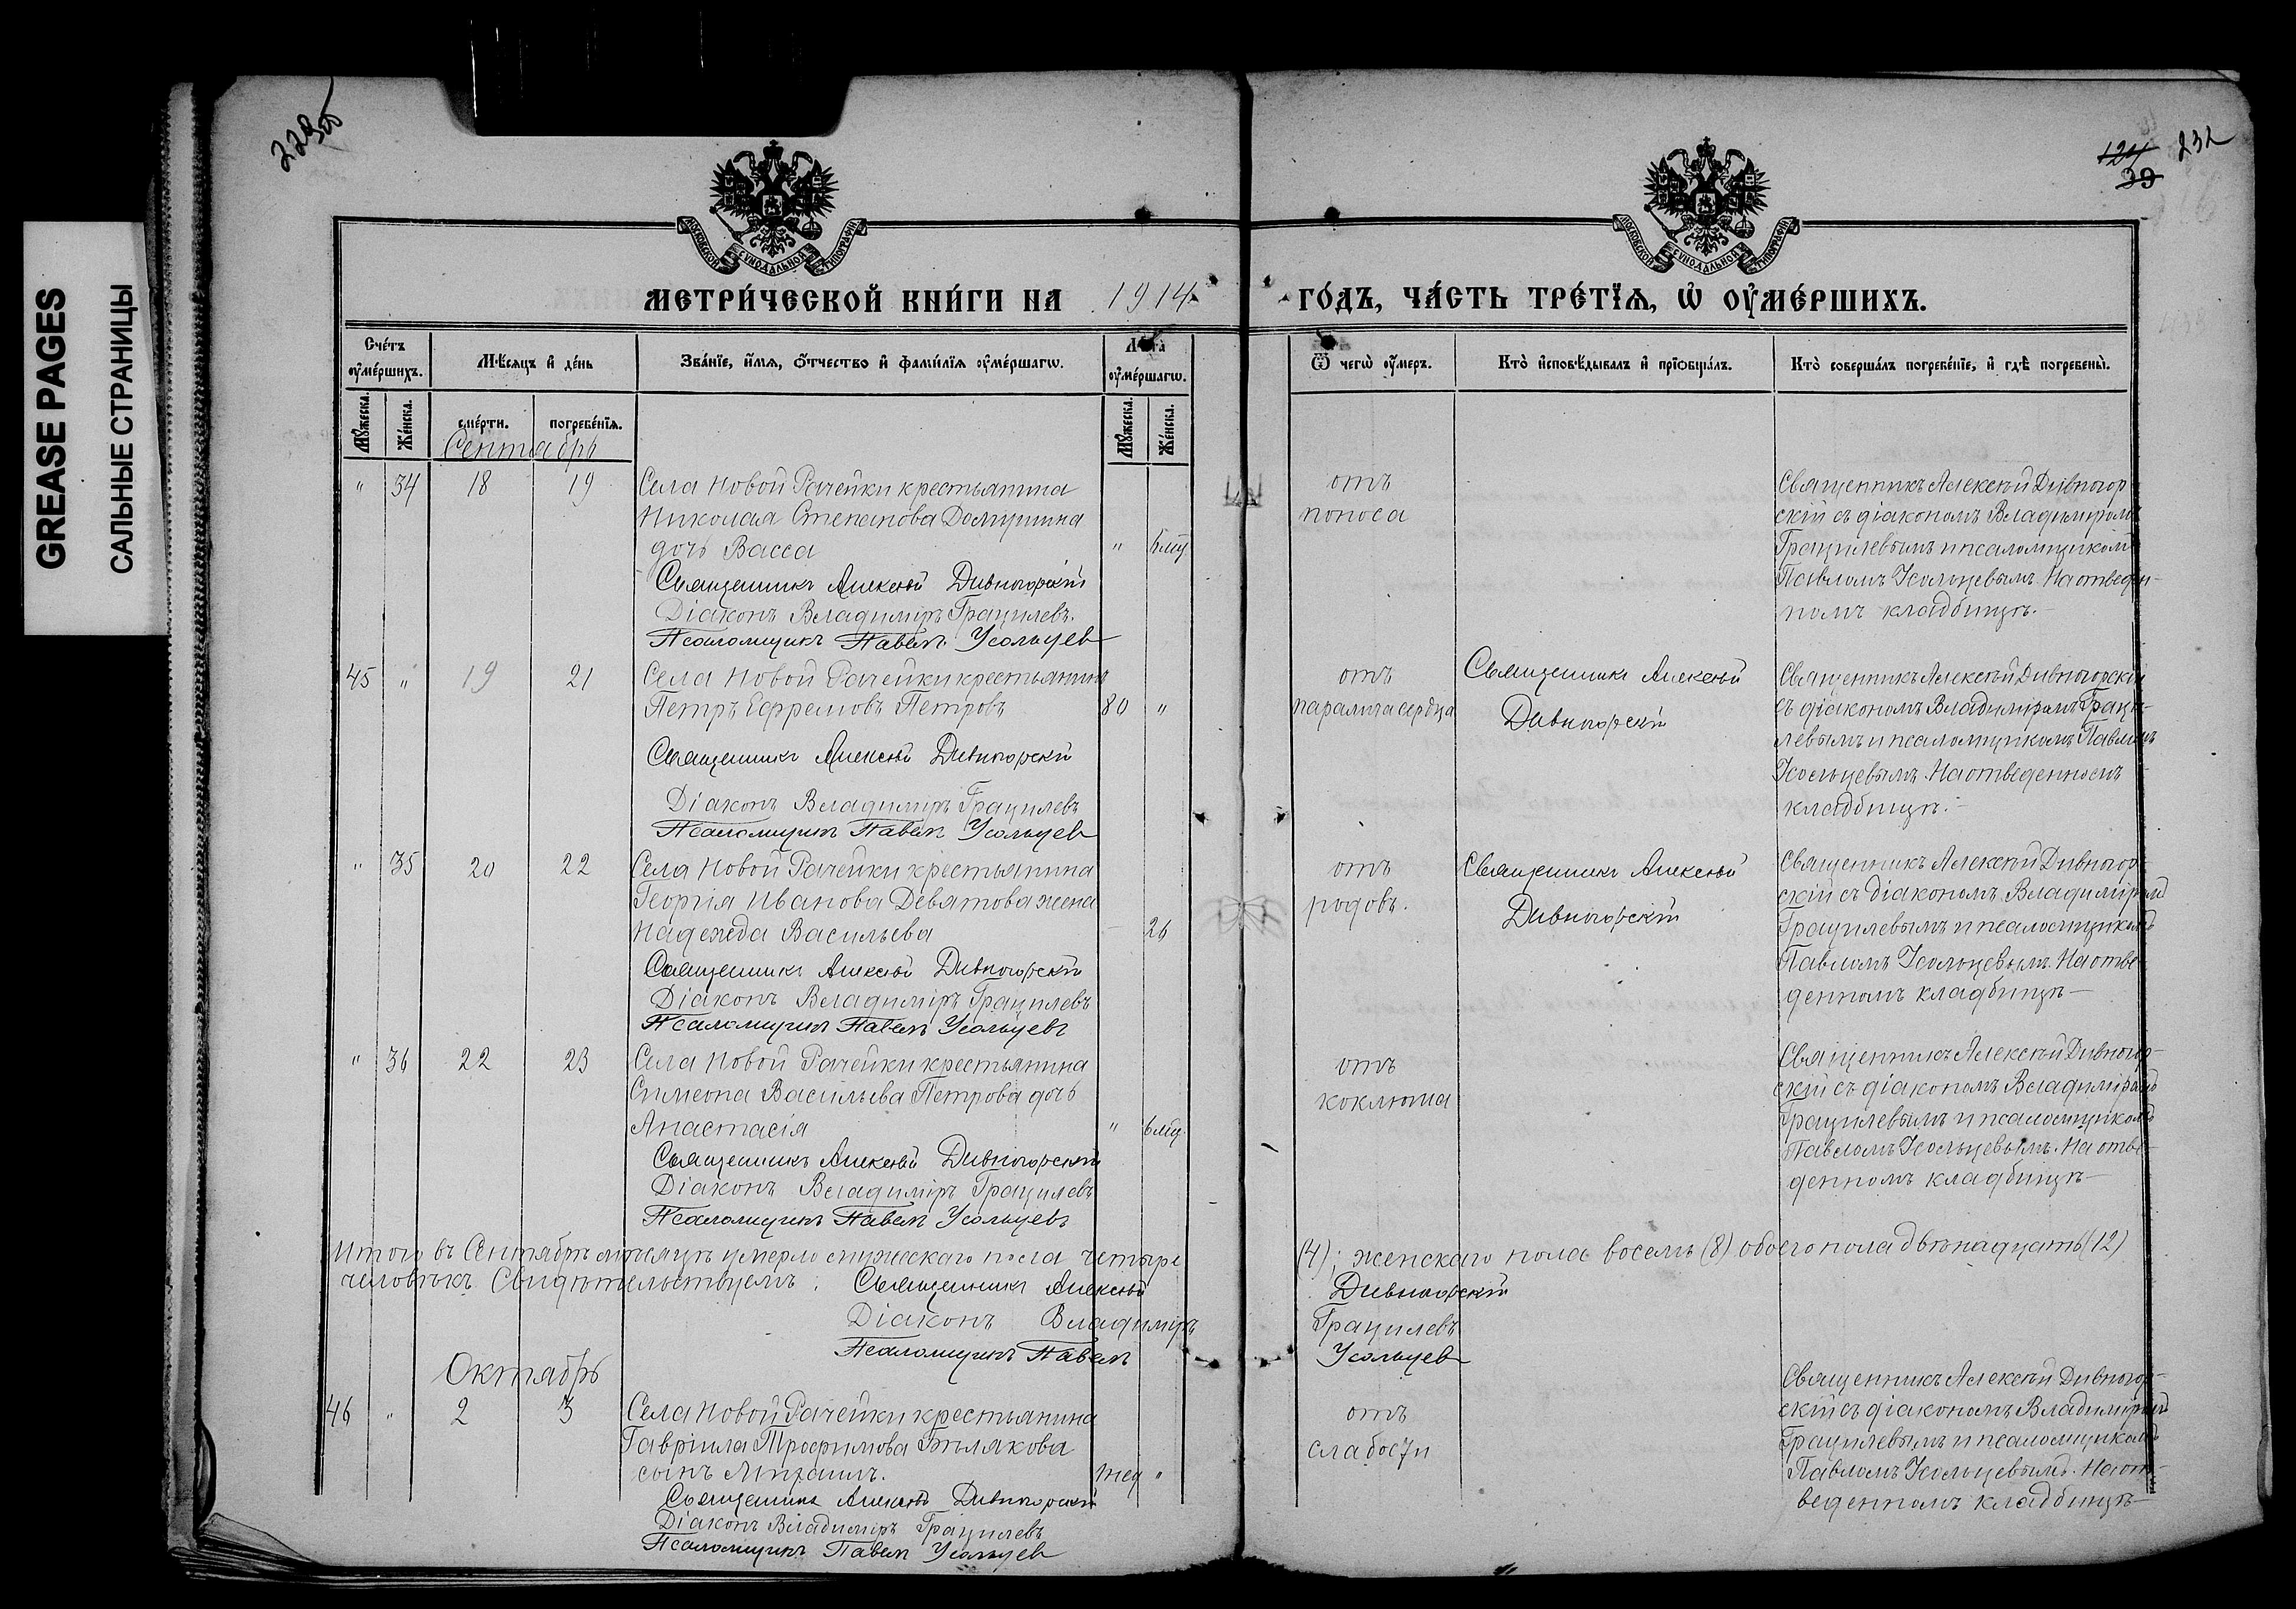 GREASE PAGES
САЛЬНЫЕ СТРАНИЦЫ
232
124
39
МОСКОВСКОЙ СѴНОДАЛЬНОЙ ТИПОГРАФІИ
МОСКОВСКОЙ СѴНОДАЛЬНОЙ ТИПОГРАФІИ
МЕТРИ́ЧЕСКОЙ КНИ́ГИ НА 1914
ГО́ДЪ, ЧА́СТЬ ТРЕ́ТЇѦ, Ѡ҆ ОУ҆МЕ́РШИХЪ.
Сче́тъ оу҆ме́ршихъ.
Мѣ́сяцъ и҆ де́нь
Зва́нїе, и҆́мѧ, ѻ҆́тчество и҆ фами́лїѧ оу҆ме́ршагѡ.
Лѣ́та оу҆ме́ршагѡ.
Ѿ чегѡ̀ оу҆́меръ.
Кто̀ и҆сповѣ́дывалъ и҆ прїѻбща́лъ.
Кто̀ соверша́лъ погребе́нїе, и҆ гдѣ̀ погребены̀.
Мꙋ́жеска.
Же́нска.
сме́рти.
погребе́нїѧ.
Мꙋ́жеска.
Же́нска.
Сентябрь
" 34 18 19 Села Новой Рачейки крестьянина
Николая Степанова Домушина
дочь Васса " 6 мц
Священникъ Алексѣй Дивногорскій
Діаконъ Владиміръ Грацилевъ.
Псаломщикъ Павелъ Усольцев
отъ
поноса
Священникъ Алексѣй Дивногор-
скій съ діакономъ Владиміромъ
Грацилевымъ и псаломщикомъ
Павломъ Усольцевымъ. На отведен-
номъ кладбищѣ.
45 " 19 21 Села Новой Рачейки крестьянинъ
Петръ Ефремовъ Петровъ 80 "
Священникъ Алексѣй Дивногорскій
Діаконъ Владиміръ Грацилевъ
Псаломщикъ Павелъ Усольцев
отъ
паралича сердца
Священникъ Алексѣй
Дивногорскій
Священникъ Алексѣй Дивногорскій
съ діакономъ Владиміромъ Граци-
левымъ и псаломщикомъ Павломъ
Усольцевымъ. На отведенномъ
кладбищѣ.
" 35 20 22 Села Новой Рачейки крестьянина
Георгія Иванова Девятова жена
Надежда Васильева 26
Священникъ Алексѣй Дивногорскій
Діаконъ Владиміръ Грацилевъ
Псаломщикъ Павелъ Усольцевъ
отъ
родовъ.
Священникъ Алексѣй
Дивногорскій
Священникъ Алексѣй Дивногор-
скій съ діакономъ Владиміромъ
Грацилевымъ и псаломщикомъ
Павломъ Усольцевымъ. На отве-
денномъ кладбищѣ
" 36 22 23 Села Новой Рачейки крестьянина
Симеона Васильева Петрова дочь
Анастасія " 6 мц.
Священникъ Алексѣй Дивногорскій
Діаконъ Владиміръ Грацилевъ
Псаломщикъ Павелъ Усольцевъ
отъ
коклюша
Священникъ Алексѣй Дивногор-
скій съ діакономъ Владиміромъ
Грацилевымъ и псаломщикомъ
Павломъ Усольцевымъ. На отве-
денномъ кладбищѣ
Итого въ Сентябрѣ мѣсяцѣ умерло мужескаго пола четыре (4); женскаго пола восемь (8) обоего пола двѣнадцать (12)
человѣкъ. Свидѣтельствуемъ: Священникъ Алексѣй Дивногорскій
Діаконъ Владиміръ Грацилевъ
Псаломщикъ Павелъ Усольцев
Октябрь
46 " 2 3 Села Новой Рачейки крестьянина
Гавріила Трофимова Бѣлякова
сынъ Михаилъ. нед "
Священникъ Алексѣй Дивногорскій
Діаконъ Владиміръ Грацилевъ
Псаломщикъ Павелъ Усольцев
отъ
слабости
Священникъ Алексѣй Дивногор-
скій съ діакономъ Владиміромъ
Грацилевымъ и псаломщикомъ
Павломъ Усольцевымъ. На от-
веденномъ кладбищѣ